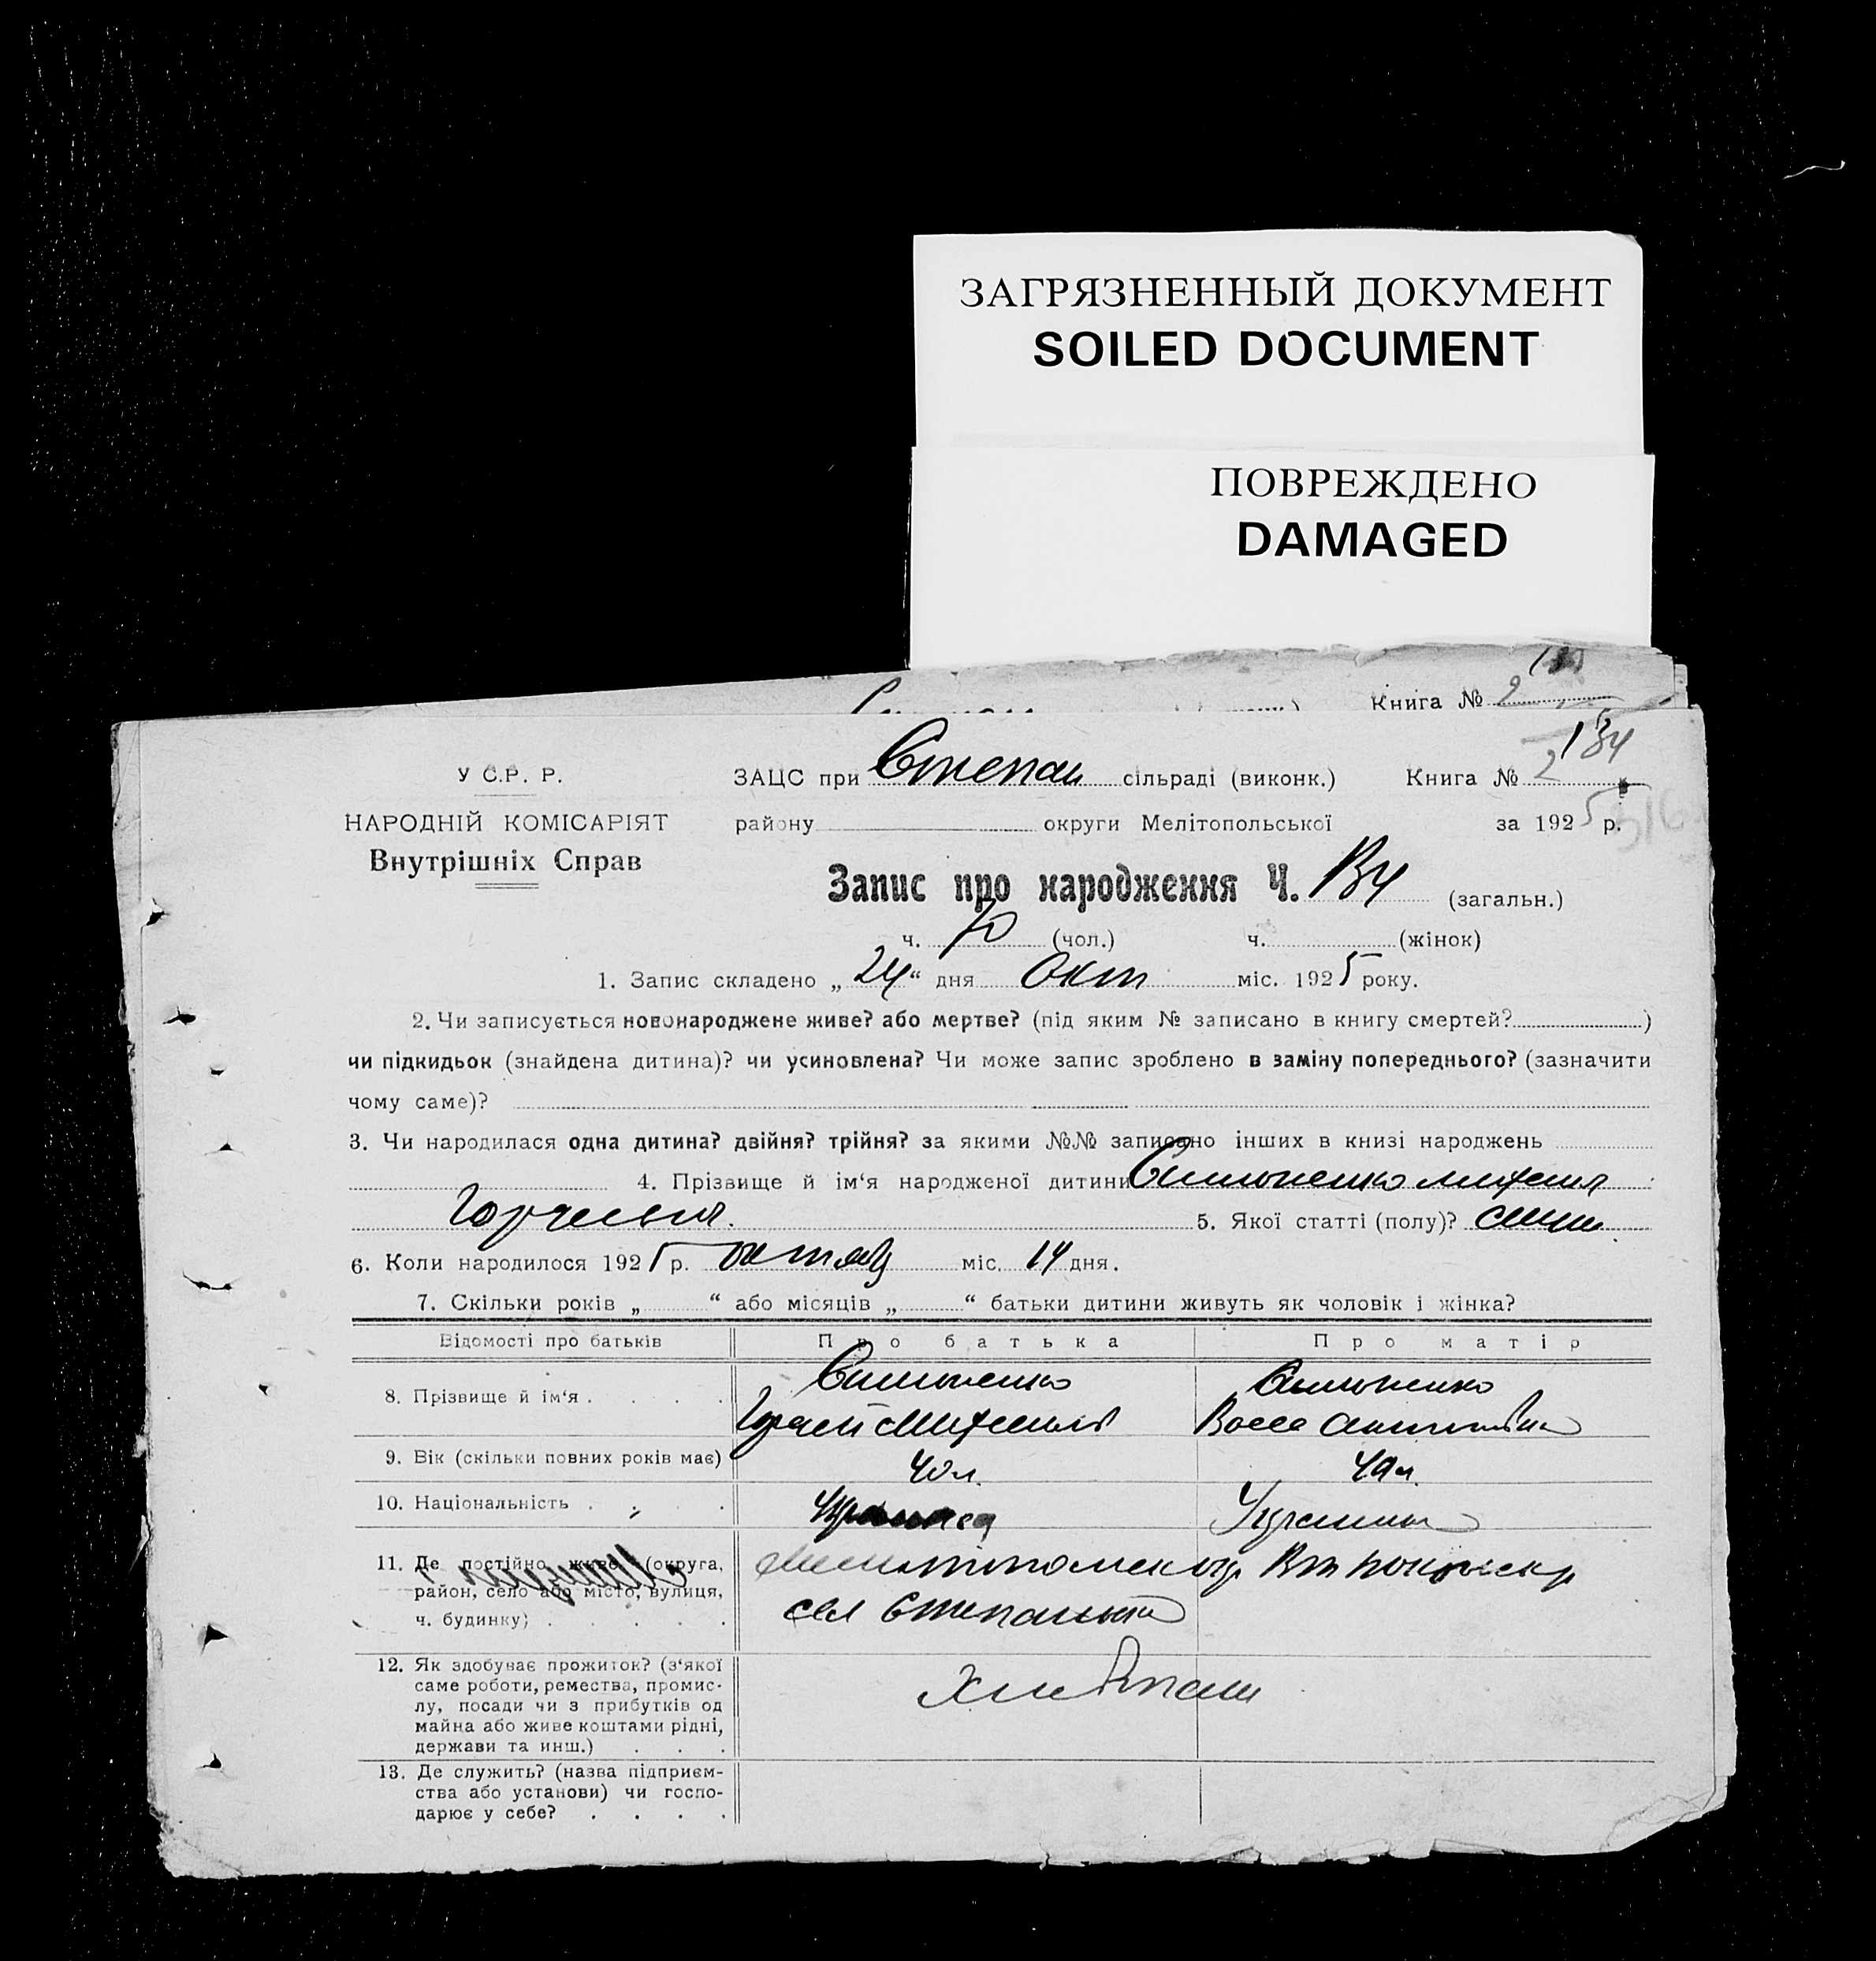 ЗАГРЯЗНЕННЫЙ ДОКУМЕНТ
SOILED DOCUMENT
ПОВРЕЖДЕНО
DAMAGED
Книга № 2
134
У С.Р. Р.
ЗАЦС при Степан сільраді (виконк.) Книга № 2
НАРОДНІЙ КОМІСАРІЯТ
району округи Мелітопольської за 1925 р.
Внутрішніх Справ
Запис про народження Ч. (загальн.)
ч. 70 (чол.) ч. (жінок)
1. Запис складено „24“ дня Окт міс. 1925 року.
2. Чи записується новонароджене живе? або мертве? (під яким № записано в книгу смертей? )
чи підкидьок (знайдена дитина)? чи усиновлена? Чи може запис зроблено в заміну попереднього? (зазначити
чому саме)?
3. Чи народилася одна дитина? двійня? трійня? за якими №№ записано інших в книзі народжень
4. Прізвище й ім‘я народженої дитини Симоненко
5. Якої статті (полу)?
6. Коли народилося 1925 р. октяб міс. 14 дня.
7. Скільки років „ “ або місяців „ “ батьки дитини живуть як чоловік і жінка?
Відомості про батьків Про батька Про матір
8. Прізвище й ім‘я . . . . Симоненко Симоненко
9. Вік (скільки повних років має) 40 л. 49 л.
10. Національність . . . .
11. Де постійно живе (округа, район, село або місто, вулиця, ч. будинку) . . . . .
сел
12. Як здобуває прожиток? (з‘якої
саме роботи, ремества, промис-
лу, посади чи з прибутків од
майна або живе коштами рідні,
держави та инш.) . . .
13. Де служить? (назва підприєм-
ства або установи) чи госпо-
дарює у себе? . . . .